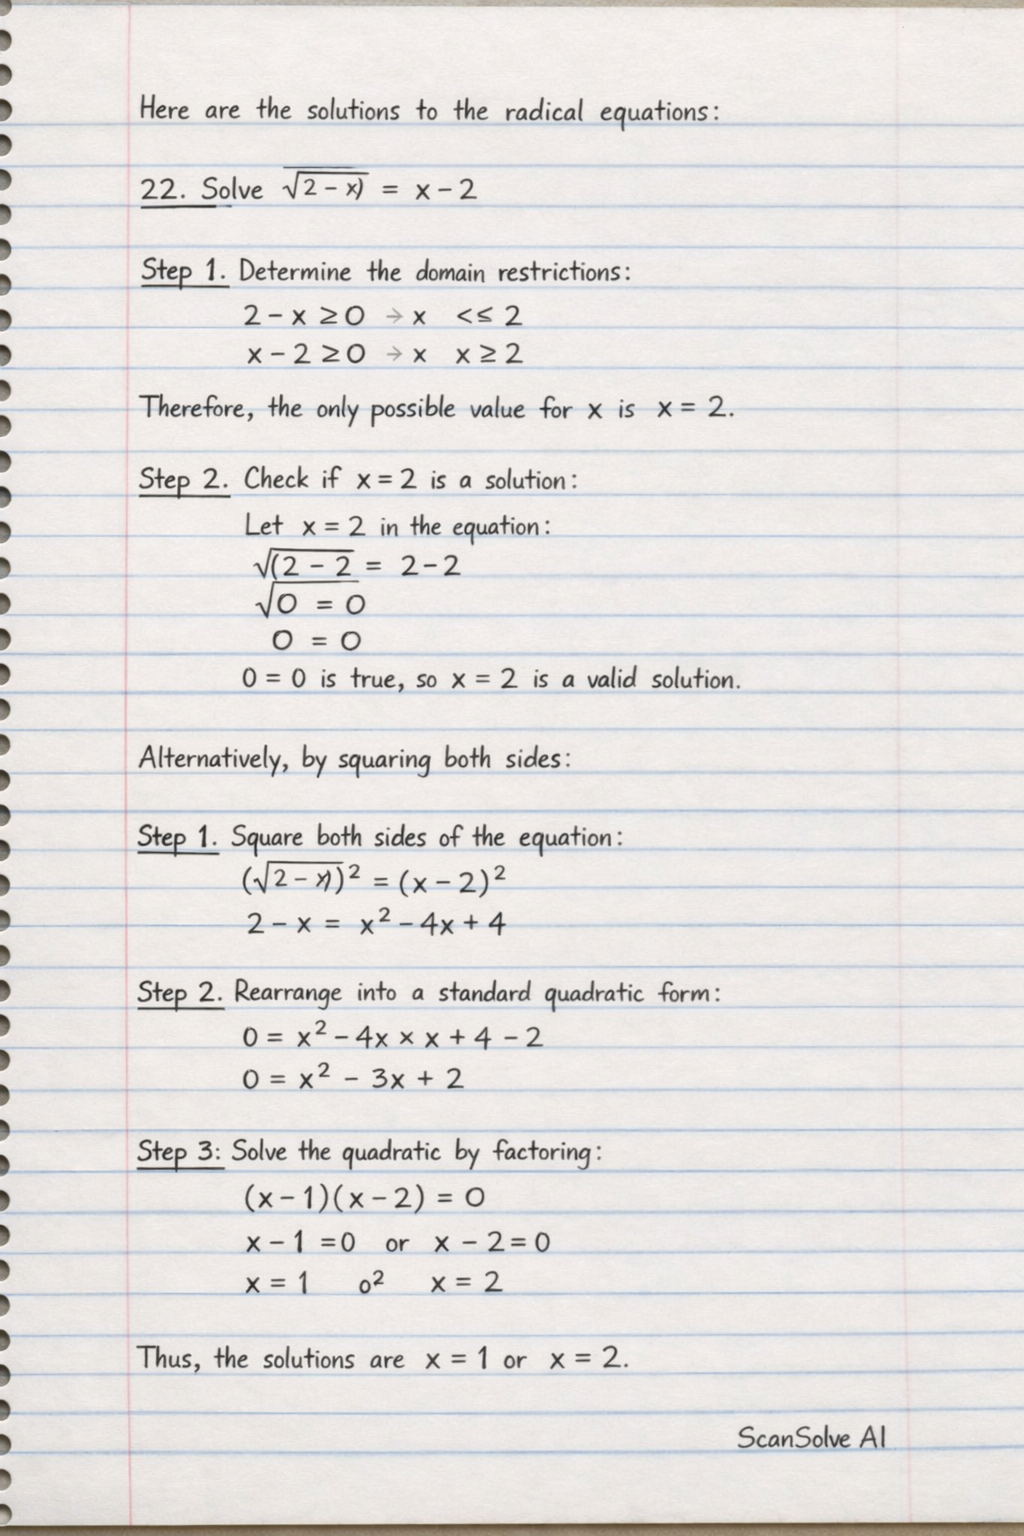 Here are the solutions to the radical equations:
22. Solve √(2 - x) = x - 2
Step 1. Determine the domain restrictions:
2 - x ≥ 0 → x <≤ 2
x - 2 ≥ 0 → x x ≥ 2
Therefore, the only possible value for x is x = 2.
Step 2. Check if x = 2 is a solution:
Let x = 2 in the equation:
√(2 - 2 = 2 - 2
√0 = 0
0 = 0
0 = 0 is true, so x = 2 is a valid solution.
Alternatively, by squaring both sides:
Step 1. Square both sides of the equation:
(√2 - x)² = (x - 2)²
2 - x = x² - 4x + 4
Step 2. Rearrange into a standard quadratic form:
0 = x² - 4x × x + 4 - 2
0 = x² - 3x + 2
Step 3: Solve the quadratic by factoring:
(x - 1)(x - 2) = 0
x - 1 = 0 or x - 2 = 0
x = 1 o² x = 2
Thus, the solutions are x = 1 or x = 2.
ScanSolve AI